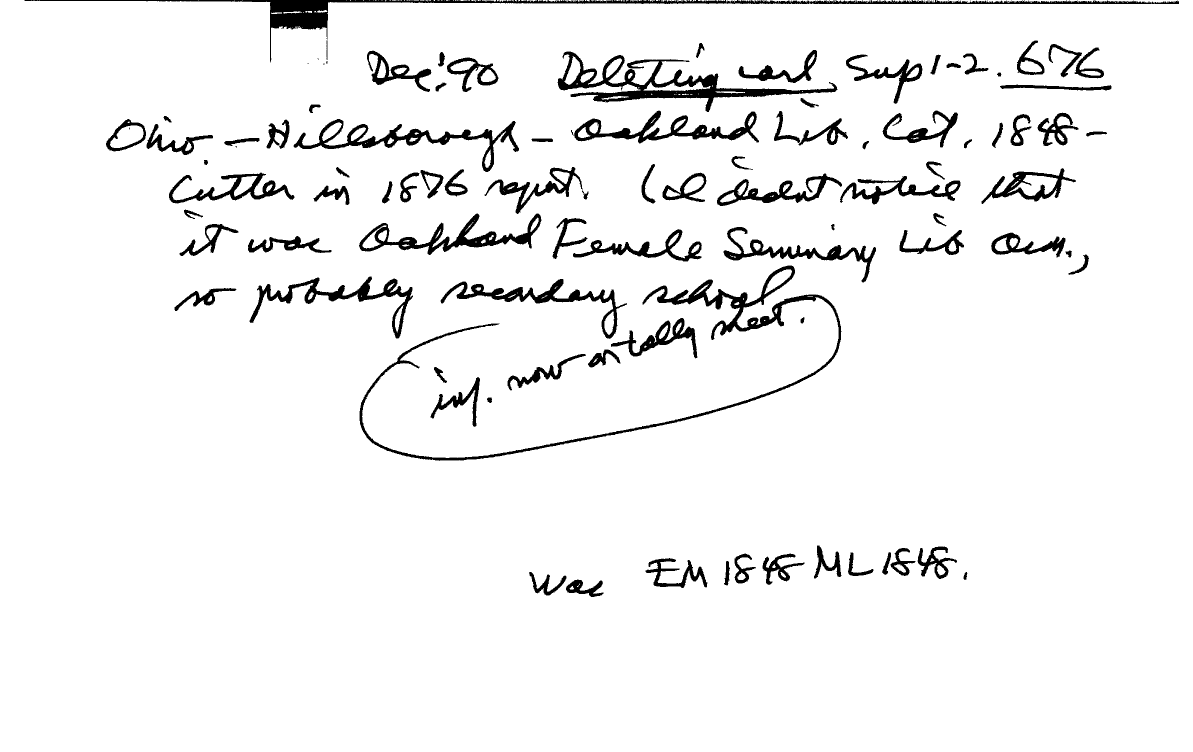 Dec. '90 Deleting card, Sup 1-2. 676
Ohio. - Hillsborough - Oakland Lib. Cat. 1848 -
Cutter in 1876 report. (I didn't notice that
it was Oakland Female Seminary Lib
so probably secondary school
inf. now on tally sheet.
Was EM 1848 ML 1848.